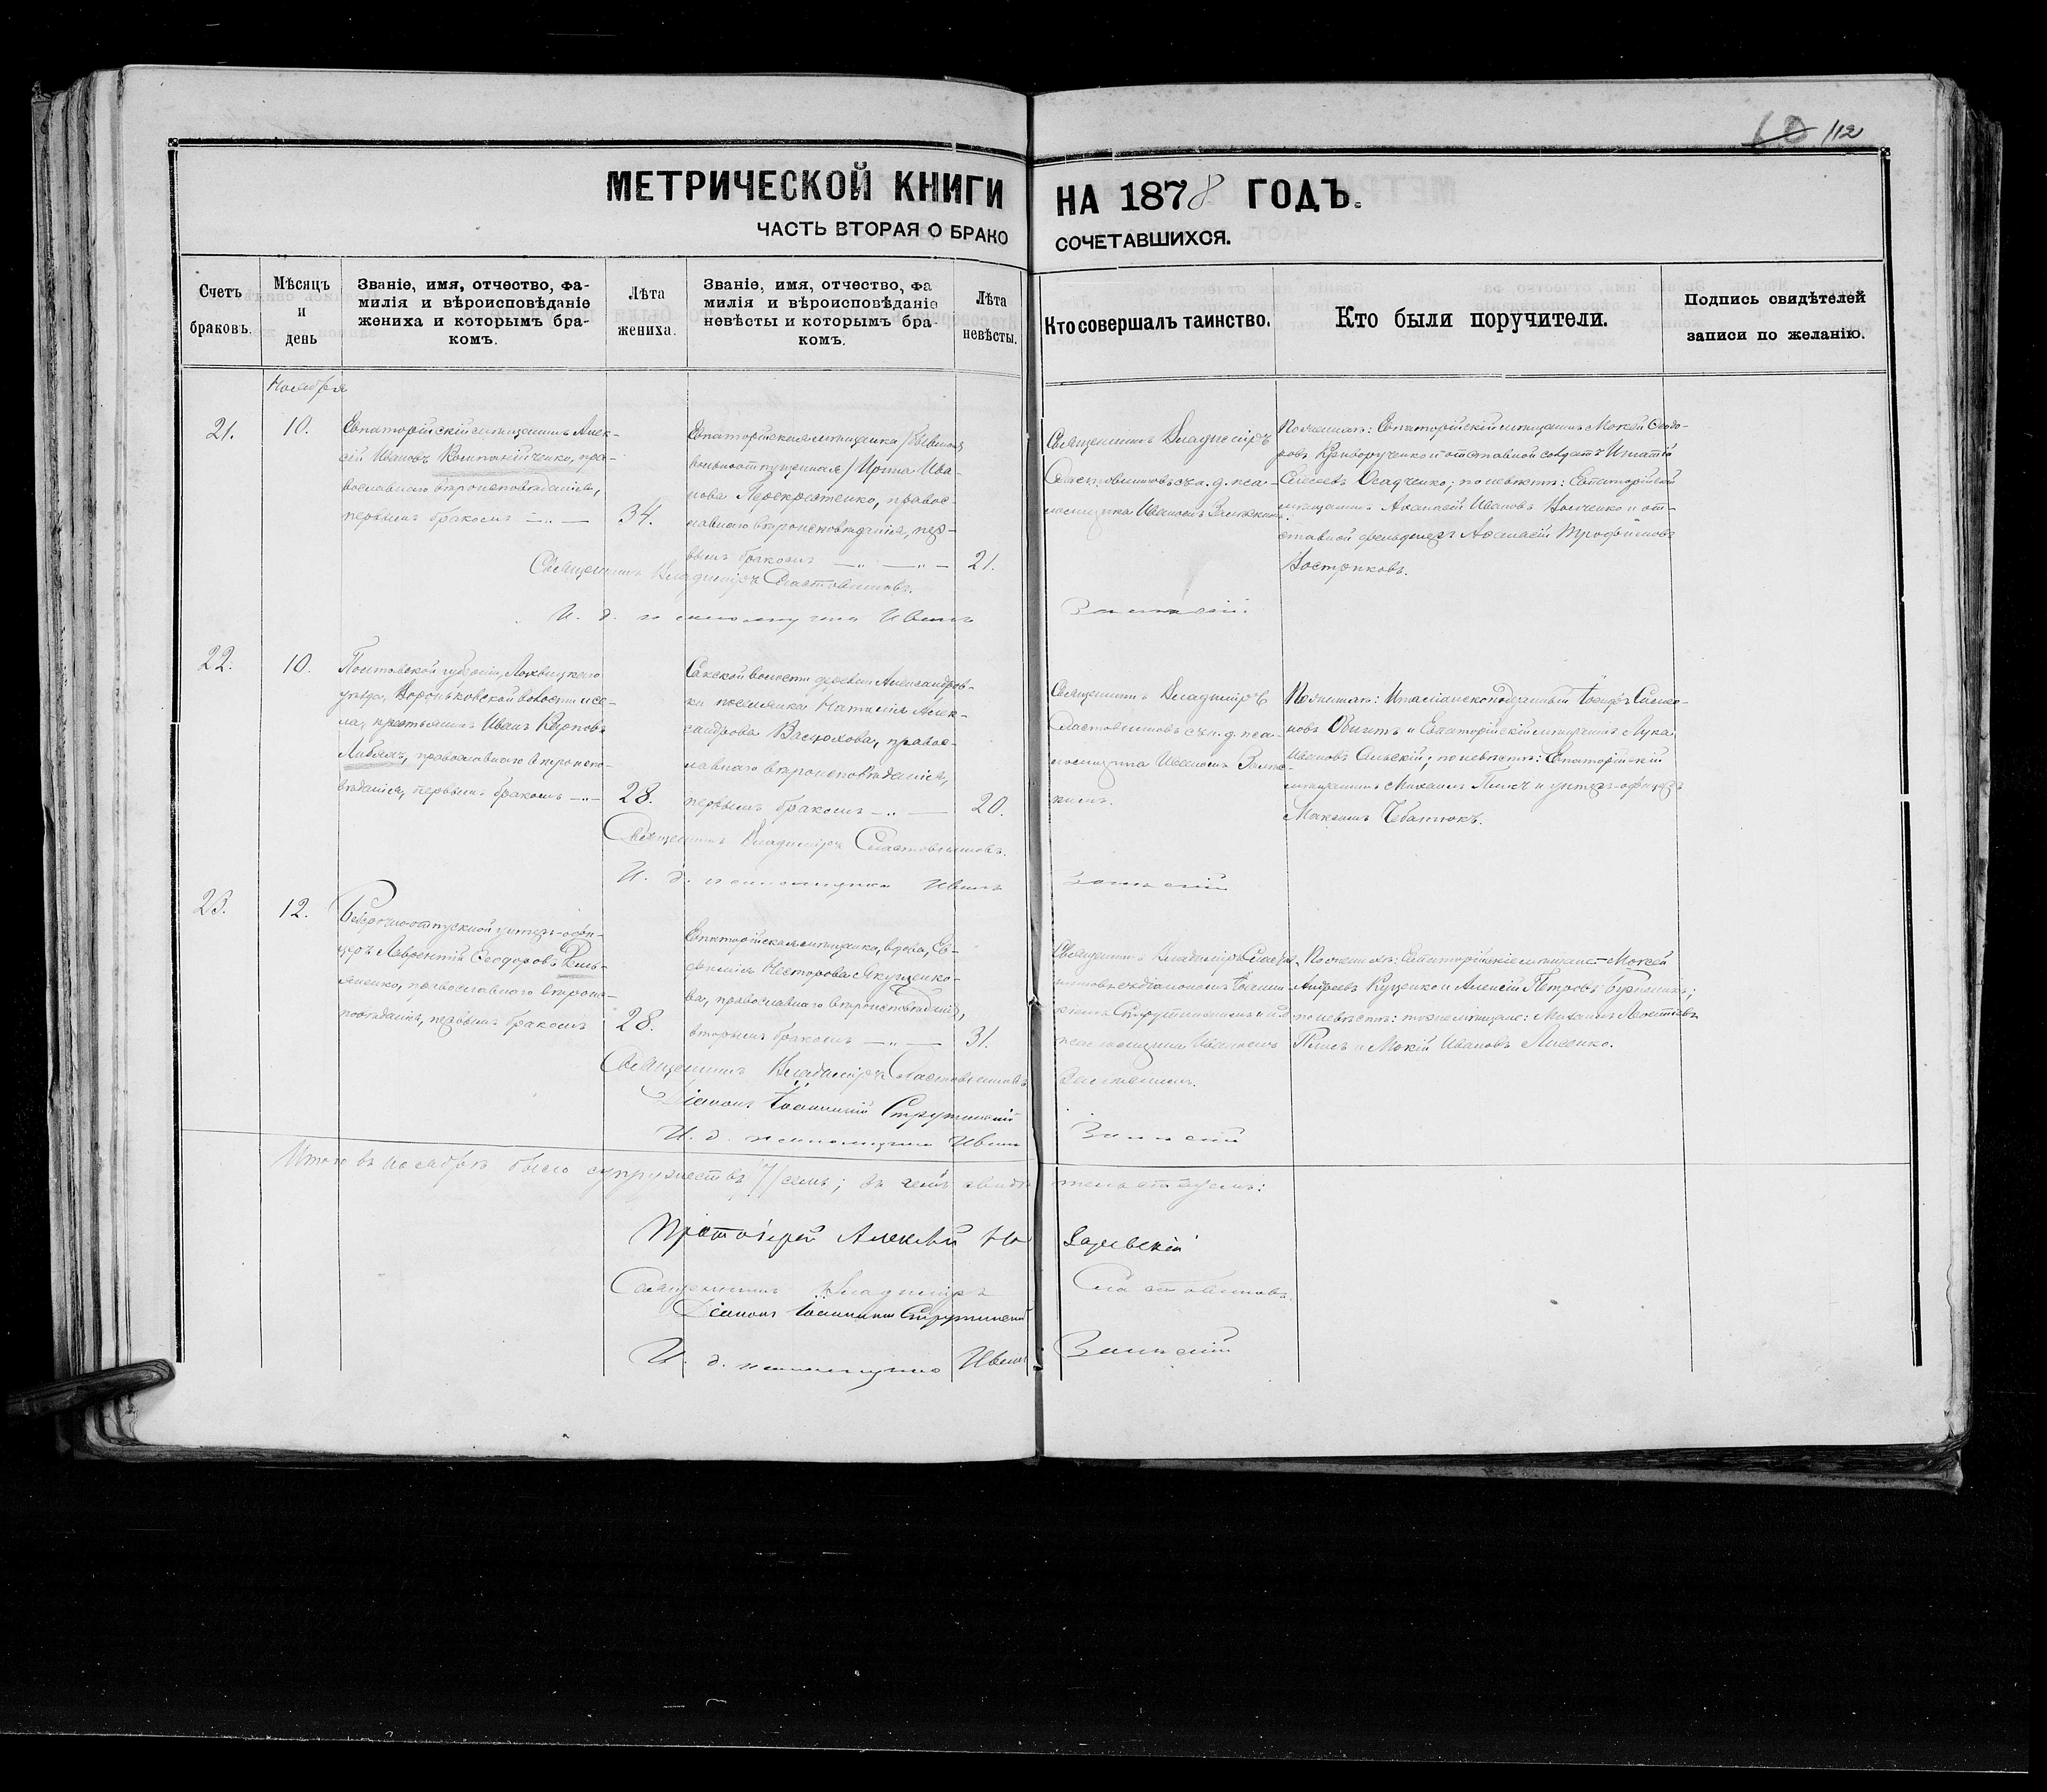 60 112
МЕТРИЧЕСКОЙ КНИГИ НА 1878 ГОДЪ.
ЧАСТЬ ВТОРАЯ О БРАКО СОЧЕТАВШИХСЯ.
Счетъ браковъ.
Мѣсяцъ и день
Званіе, имя, отчество, фа-
милія и вѣроисповѣданіе
жениха и которымъ бра-
комъ.
Лѣта жениха.
Званіе, имя, отчество, фа
милія и вѣроисповѣданіе
невѣсты и которымъ бра-
комъ.
Лѣта невѣсты.
Кто совершалъ таинство.
Кто были поручители.
Подпись свидѣтелей
записи по желанію.
Ноября
21.
10.
Евпаторійскій мѣщанинъ Алек-
сѣй Ивановъ Компанійченко, пра-
вославнаго вѣроисповѣданія,
первымъ бракомъ
34.
Евпаторійская мѣщанка
Ирина Ива-
нова правос-
лавнаго вѣроисповѣданія, пер-
вымъ бракомъ
21.
Священникъ Владиміръ
Сластовниковъ съ и. д. пса-
ломщика Иваномъ
По женихѣ: Евпаторійскій мѣщанинъ Мокей Ѳедо-
ровъ Криворученко и отставной солдатъ Игнатій
Осадченко; по невѣстѣ: Евпаторійскій
мѣщанинъ Аѳанасій Ивановъ и от-
ставной фельдшеръ Аѳанасій Трофимовъ
Востриковъ.
Священникъ Владиміръ Сластовниковъ.
И. д. псаломщика Иванъ
22.
10.
Полтавской губерніи, Лохвицкаго
уѣзда, Вороньковской волости и се-
ла, крестьянинъ Иванъ Карповъ
православнаго вѣроиспо-
вѣданія, первымъ бракомъ
28.
Сакской волости деревни Александров-
ки поселянка Наталія Алек-
сандрова Васюхова, правос-
лавнаго вѣроисповѣданія,
первымъ бракомъ
20.
Священникъ Владиміръ
Сластовниковъ съ и. д. пса-
ломщика Иваномъ
По женихѣ: Италіанскоподданный Іосифъ
и Евпаторійскій мѣщанинъ Лука
Ивановъ по невѣстѣ: Евпаторійскій
мѣщанинъ Михаилъ и унтеръ-офицеръ
Максимъ Чбанюкъ.
Священникъ Владиміръ Сластовниковъ.
И. д. псаломщика Иванъ
23.
12.
Безсрочноотпускной унтеръ-офи-
церъ Лаврентій Ѳеодоровъ
православнаго вѣроис-
повѣданія, первымъ бракомъ
28.
Евпаторійская мѣщанка, вдова, Ев-
фимія Несторова Якущенко-
ва, православнаго вѣроисповѣданія,
вторымъ бракомъ
31.
Священникъ Владиміръ Сластов-
никовъ съ діакономъ Іоанни-
кіемъ Струтинскимъ и и. д.
псаломщика Иваномъ
По женихѣ: Евпаторійскіе мѣщане Мокей
Андреевъ Куценко и Алексій Петровъ
по невѣстѣ: тоже мѣщане: Михаилъ Леонтіевъ
и Мокій Ивановъ Лисенко.
Священникъ Владиміръ Сластовниковъ
Діаконъ Іоанникій Струтинскій
И. д. псаломщика Иванъ
Итого въ ноябрѣ было супружествъ 7/семь; въ чемъ свидѣтельствуемъ:
Протоіерей Алексій
Священникъ Владиміръ Сластовниковъ.
Діаконъ Іоанникій Струтинскій
И. д. псаломщика Иванъ